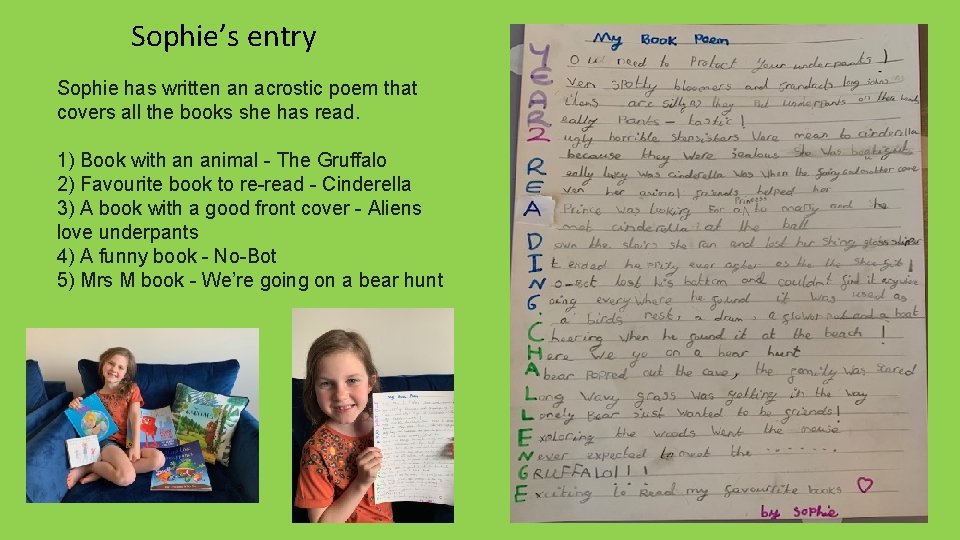 Sophie's entry
Sophie has written an acrostic poem that
covers all the books she has read.
1) Book with an animal - The Gruffalo
2) Favourite book to re-read - Cinderella
3) A book with a good front cover - Aliens
love underpants
4) A funny book - No-Bot
5) Mrs M book - We're going on a bear hunt
My Book Poem
You need to Protect your underpants!
Even spotty bloomers and Grandads long johns
Aliens are silly as they Put underpants on their heads
Really Pants-tastic!
2 ugly horrible stepsisters Were mean to cinderella
because they were jealous she was
Really lucky was cinderella was when the fairy godmother came
Even her animal friends helped her
A Prince was looking For a Princess to marry and he
met cinderella at the ball
Down the stairs she ran and lost her glass slipper
It ended happily ever after as the shoe fit!
No-Bot lost his bottom and couldnt find it anywhere
Going everywhere he found it was used as
a birds nest, a drum, a flower pot and a boat
Cheering when he found it at the beach!
Here we go on a bear hunt
A bear popped out the cave, the family was scared
Long Wavy grass was getting in the way
Lonely Bear just wanted to be friends!
Exploring the woods went the mouse
Never expected to meet the .......
GRUFFALO!!!
Exciting to Read my favourite books
by Sophie